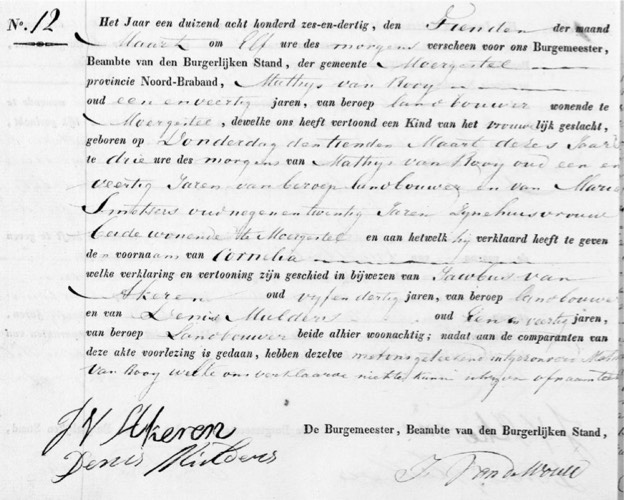 No. 12
Het Jaar een duizend acht honderd zes-en-dertig, den Tienden der maand
Maart om Elf ure des morgens verscheen voor ons Burgemeester,
Beambte van den Burgerlijken Stand, der gemeente Moergestel
provincie Noord-Braband, Mathys van Rooy
oud een en veertig jaren, van beroep landbouwer wonende te
Moergestel, dewelke ons heeft vertoond een Kind van het vrouwlijk geslacht,
geboren op Donderdag den tienden Maart dezes Jaars
te drie ure des morgens van Mathys van Rooy oud een en
veertig Jaren van beroep landbouwer en van Maria
Smetsers oud negenentwintig Jaren Zyne huisvrouw
beide wonende te Moergestel en aan hetwelk hij verklaard heeft te geven
den voornaam van Cornelia
welke verklaring en vertooning zijn geschied in bijwezen van van
Akeren oud vyfendertig jaren, van beroep landbouwer
en van Denis Mulders oud een en jaren,
van beroep Landbouwer beide alhier woonachtig; nadat aan de comparanten van
deze akte voorlezing is gedaan, hebben dezelve met ons geteekend uitgezonderd
van Rooy welke ons verklaarde niet te kunnen schryven of naamteek
J V Akeren
Denis Mulders
De Burgemeester, Beambte van den Burgerlijken Stand,